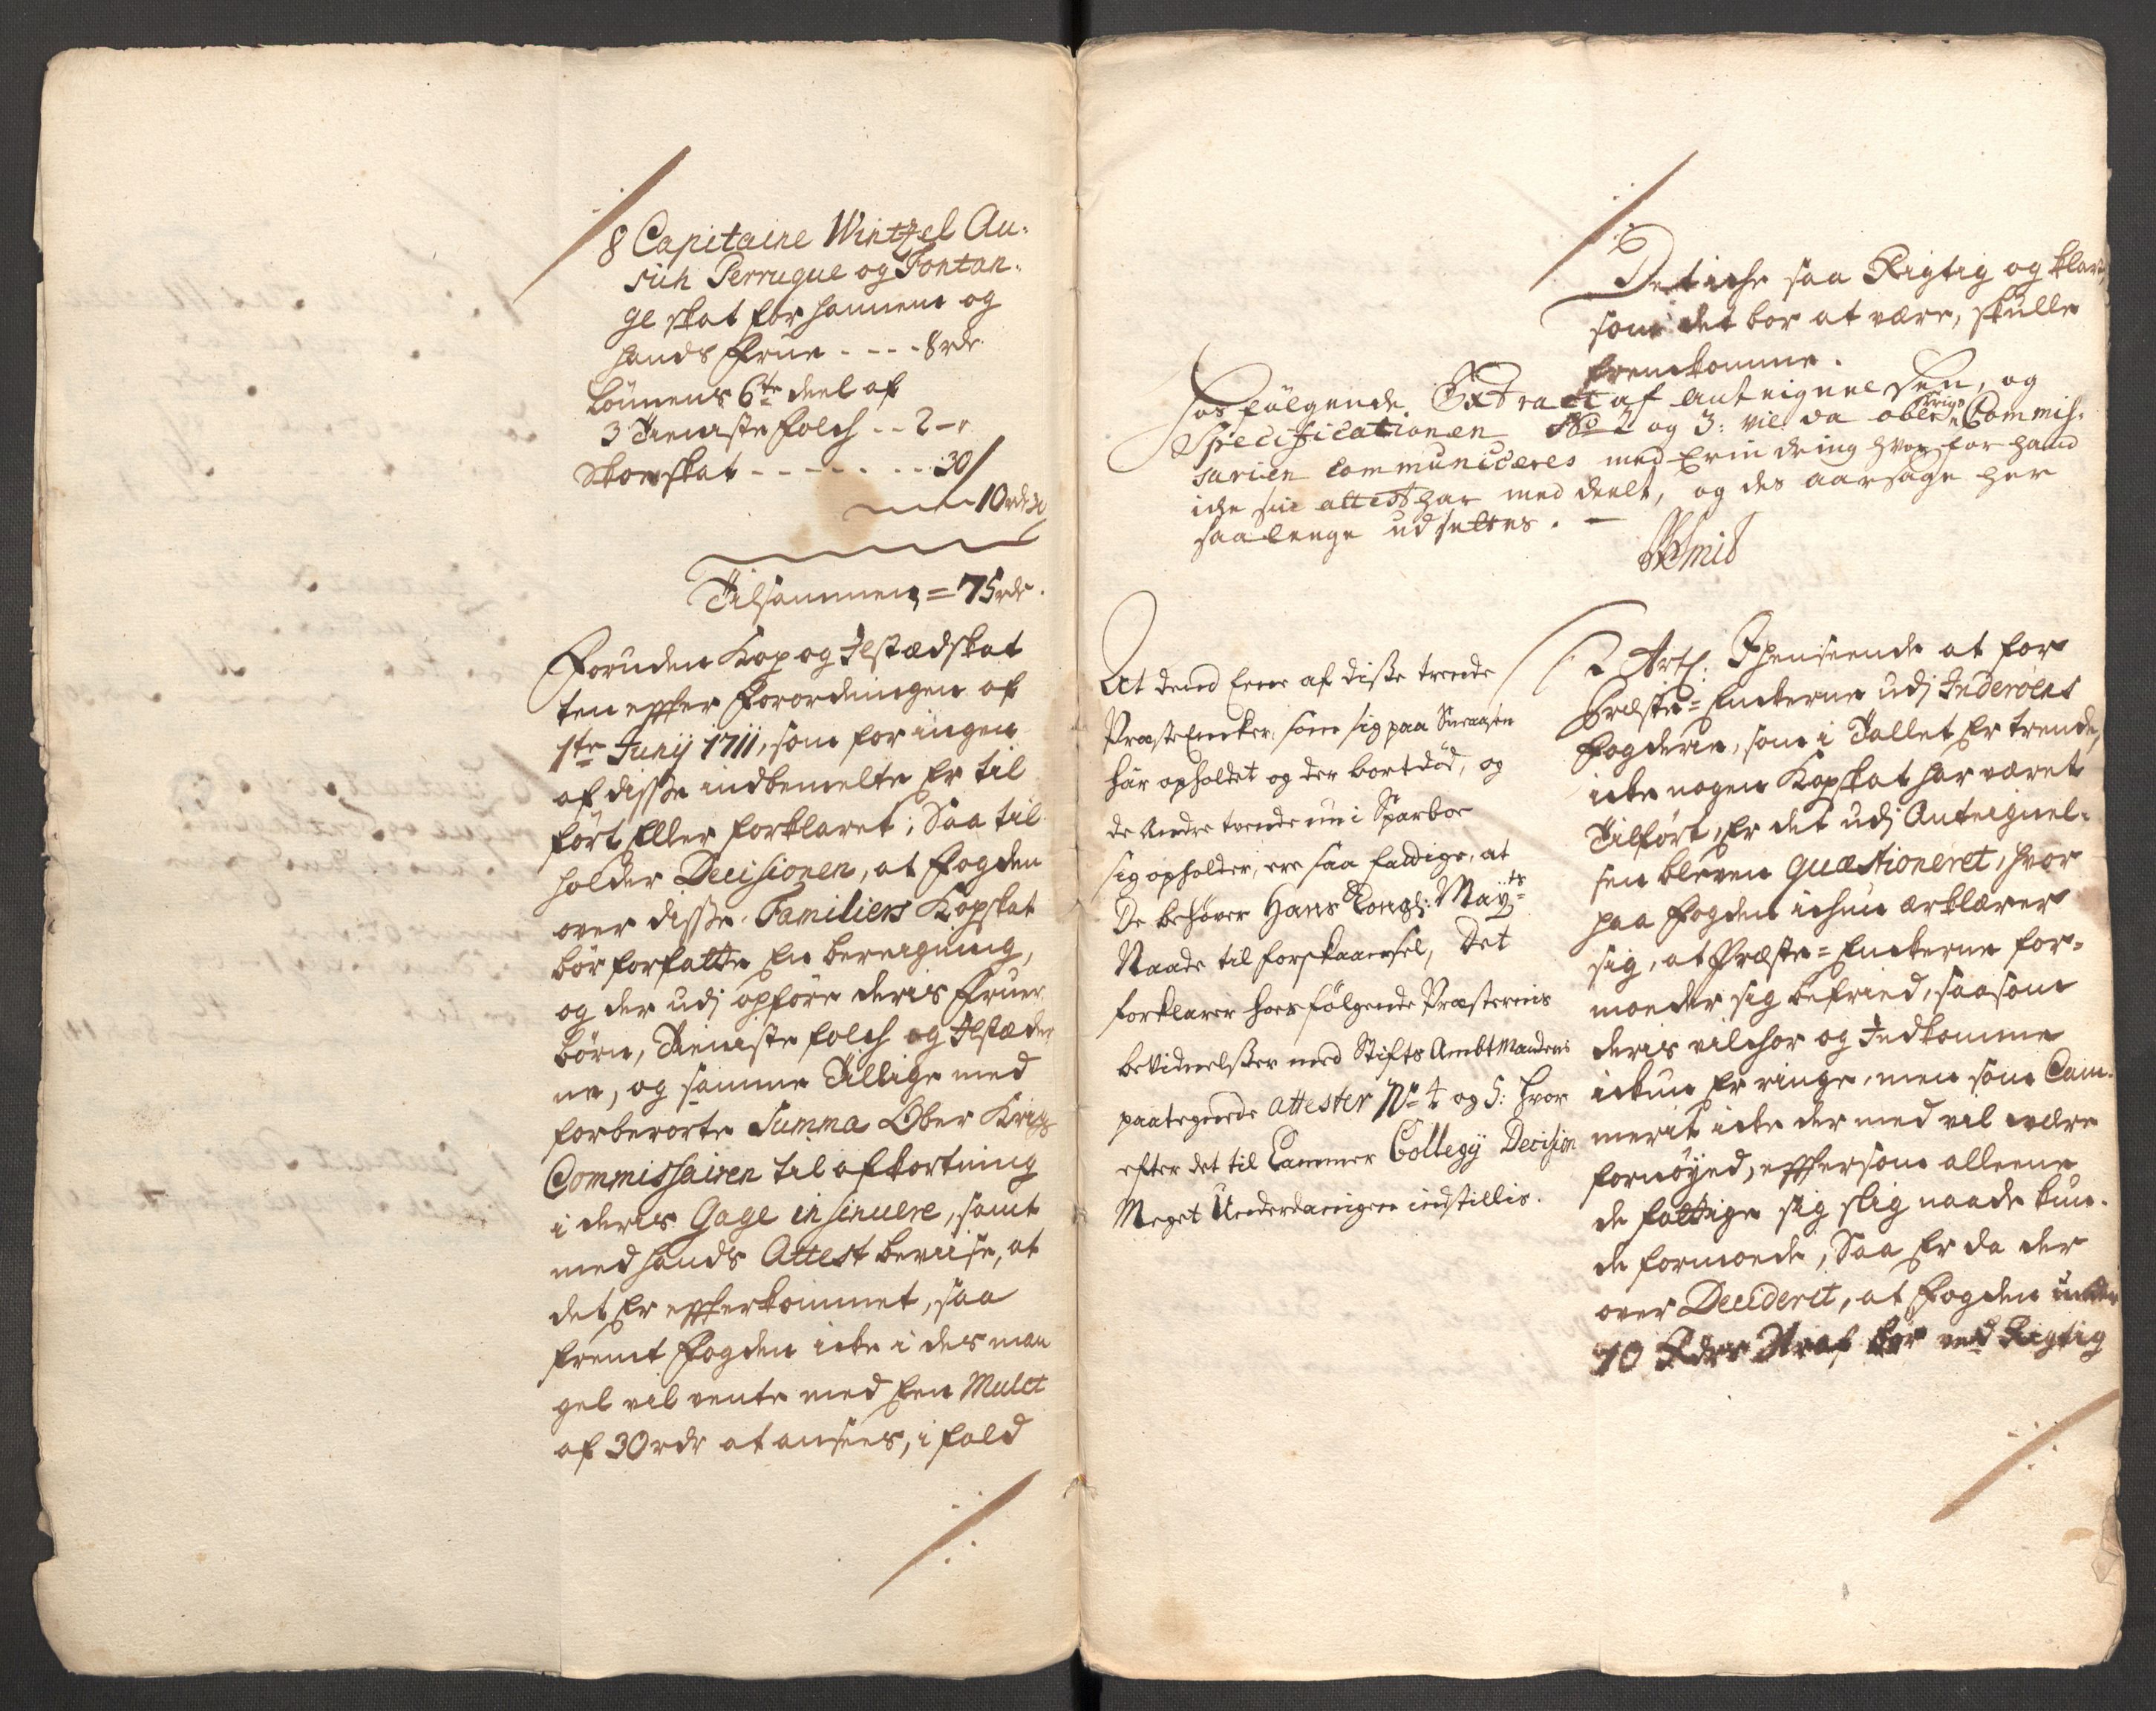 8 Capitaine Wintzel An-
sich Perruque og Fontan-
ge skat for hannem og
hands Frue - - - - 8 rdr
Lönnens 6te deel af
3 Tieniste folch - - 2 - "
Skoeskat - - - - - - - 30/
10 rdr
Tilsammen = 75 rdr.
Foruden Kop og Ildstædskat
ten effter Forordningen af
1te Junij 1711, som for ingen
af disse indbemelte Er til
fört Eller forklaret; Saa til
holder Decisionen, at Fogden
over disse Familiers Kopskat
bör forfatte En beregning,
og der udj opföre deris Fruer
börn, Tieniste folch og Ildstæder
ne, og samme Tillige med
forberörte Summa Ober Krigs
Commissairen til afkortning
i deris Gage insinuere, samt
med hands Attest beviise, at
det Er effterkommet, saa
fremt Fogden icke i des man
gel vil vente med Een Mulct
af 30 rdr at ansees, i fald
Det icke saa Rigtig og klart,
som det bör at være, skulle
fremkomme.
Hos fölgende Extract af Anteignelsen, og
Specificationen No 2 og 3: vil da ober Krigs Commis-
sarien communiceres med Erindring hvorfor hand
icke sin attest har meddeelt, og des aarsage her
saa lenge udsettes. -
At dend Eene af disse trende
Præste Encker, som sig paa Snaasen
har opholdet og der bortdöd, og
de Andre tvende nu i Sparboe
sig opholder, ere saa fattige, at
De behøver Hans Kongl: Mayts
Naade til forskaansel, Det
forklarer hoes følgende Præsternis
bevidnelsser med Stifts Ambtmandens
paategnede attester No 4 og 5: hvor
efter det til Cammer Collegij Decision
Meget Underdanigen indstillis.
2 Art. Ihenseende at for
Præste-Enckerne udj Inderöens
Fogderie, som i Tallet Er trende,
icke nogen Kopskat har været
Tilfört, Er det udj Anteignel-
sen bleven quæstioneret, hvor
paa Fogden ickun erklærer
sig, at Præste-Enckerne for-
moeder sig befried, saasom
deris vilchor og Indkomme
ickun Er ringe, men som Cam-
merit icke der med vil være
fornöyed, effersom alleene
de fattige sig slig naade kun-
de formoede, Saa Er da der
over Decideret, at Fogden under
10 Rdrs Straf bör ved Rigtig